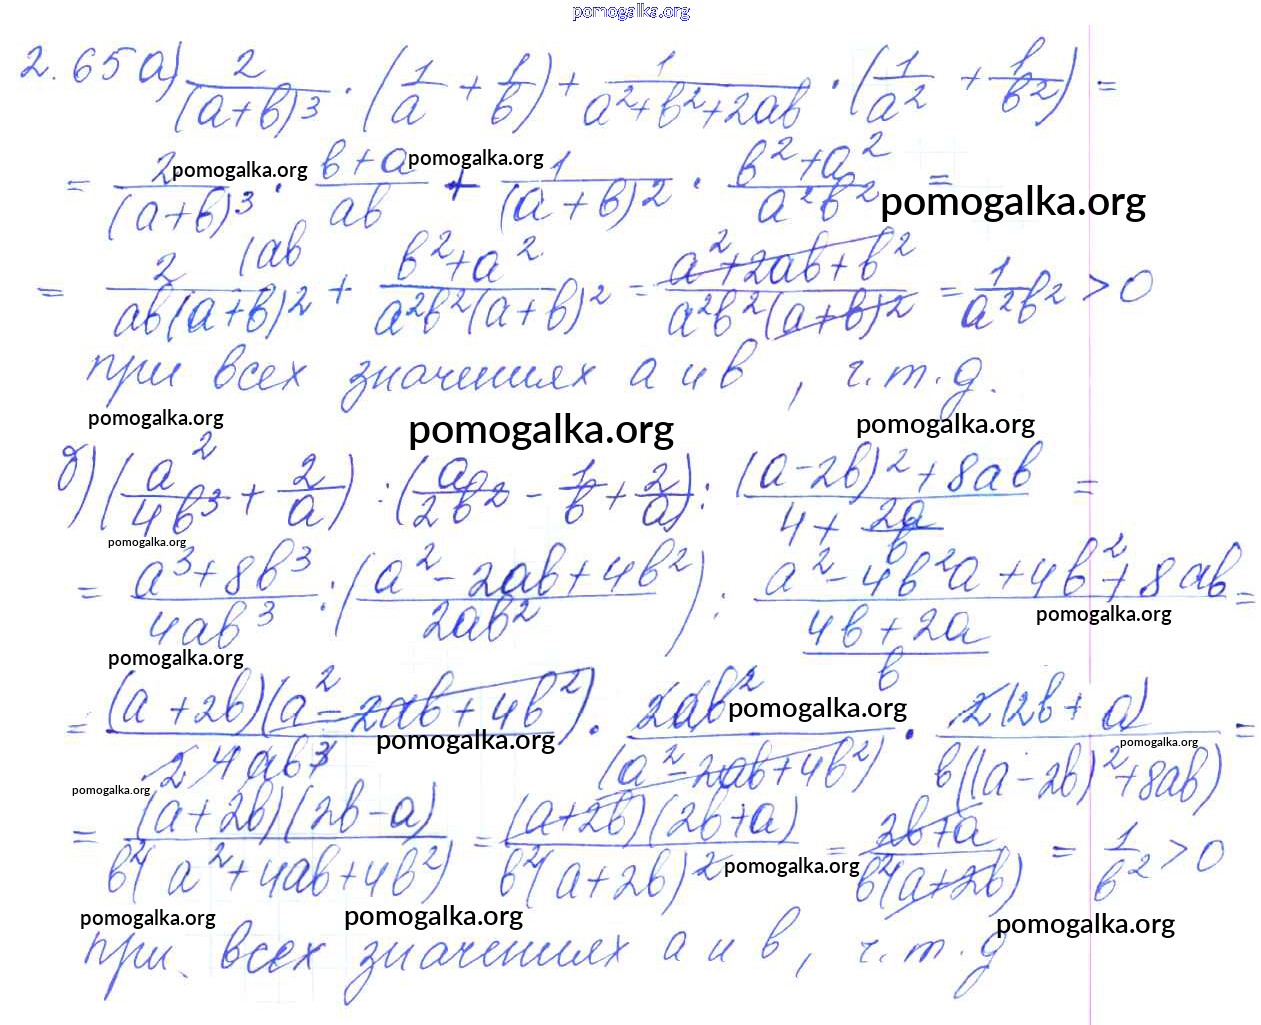 pomogalka.org
2.65 а) 2/(a+b)³ · (1/a + 1/b) + 1/(a²+b²+2ab) · (1/a² + 1/b²) =
= 2/(a+b)³ · (b+a)/(ab) + 1/(a+b)² · (b²+a²)/(a²b²) =
pomogalka.org pomogalka.org pomogalka.org
= 2/(ab(a+b)²) (ab + (b²+a²)/(a²b²(a+b)²) = (a²+2ab+b²)/(a²b²(a+b)²) = 1/(a²b²) > 0
при всех значениях a и b, ч.т.д.
pomogalka.org pomogalka.org pomogalka.org
б) (a²/(4b³) + 2/a) : (a/(2b²) - 1/b + 2/a) : ((a-2b)²+8ab)/(4+2a/b) =
pomogalka.org
= (a³+8b³)/(4ab³) : ((a²-2ab+4b²)/(2ab²)) : (a²-4b²a+4b²+8ab)/((4b+2a)/b) =
pomogalka.org
pomogalka.org
= (a+2b)(a²-2ab+4b²)/(2 4ab³) · 2ab²/(a²-2ab+4b²) · 2(2b+a)/(b((a-2b)²+8ab)) =
pomogalka.org pomogalka.org pomogalka.org
pomogalka.org
= (a+2b)(2b-a)/(b²(a²+4ab+4b²)) = (a+2b)(2b+a)/(b²(a+2b)²) = (2b+a)/(b²(a+2b)) = 1/b² > 0
pomogalka.org
pomogalka.org pomogalka.org pomogalka.org
при всех значениях a и b, ч.т.д